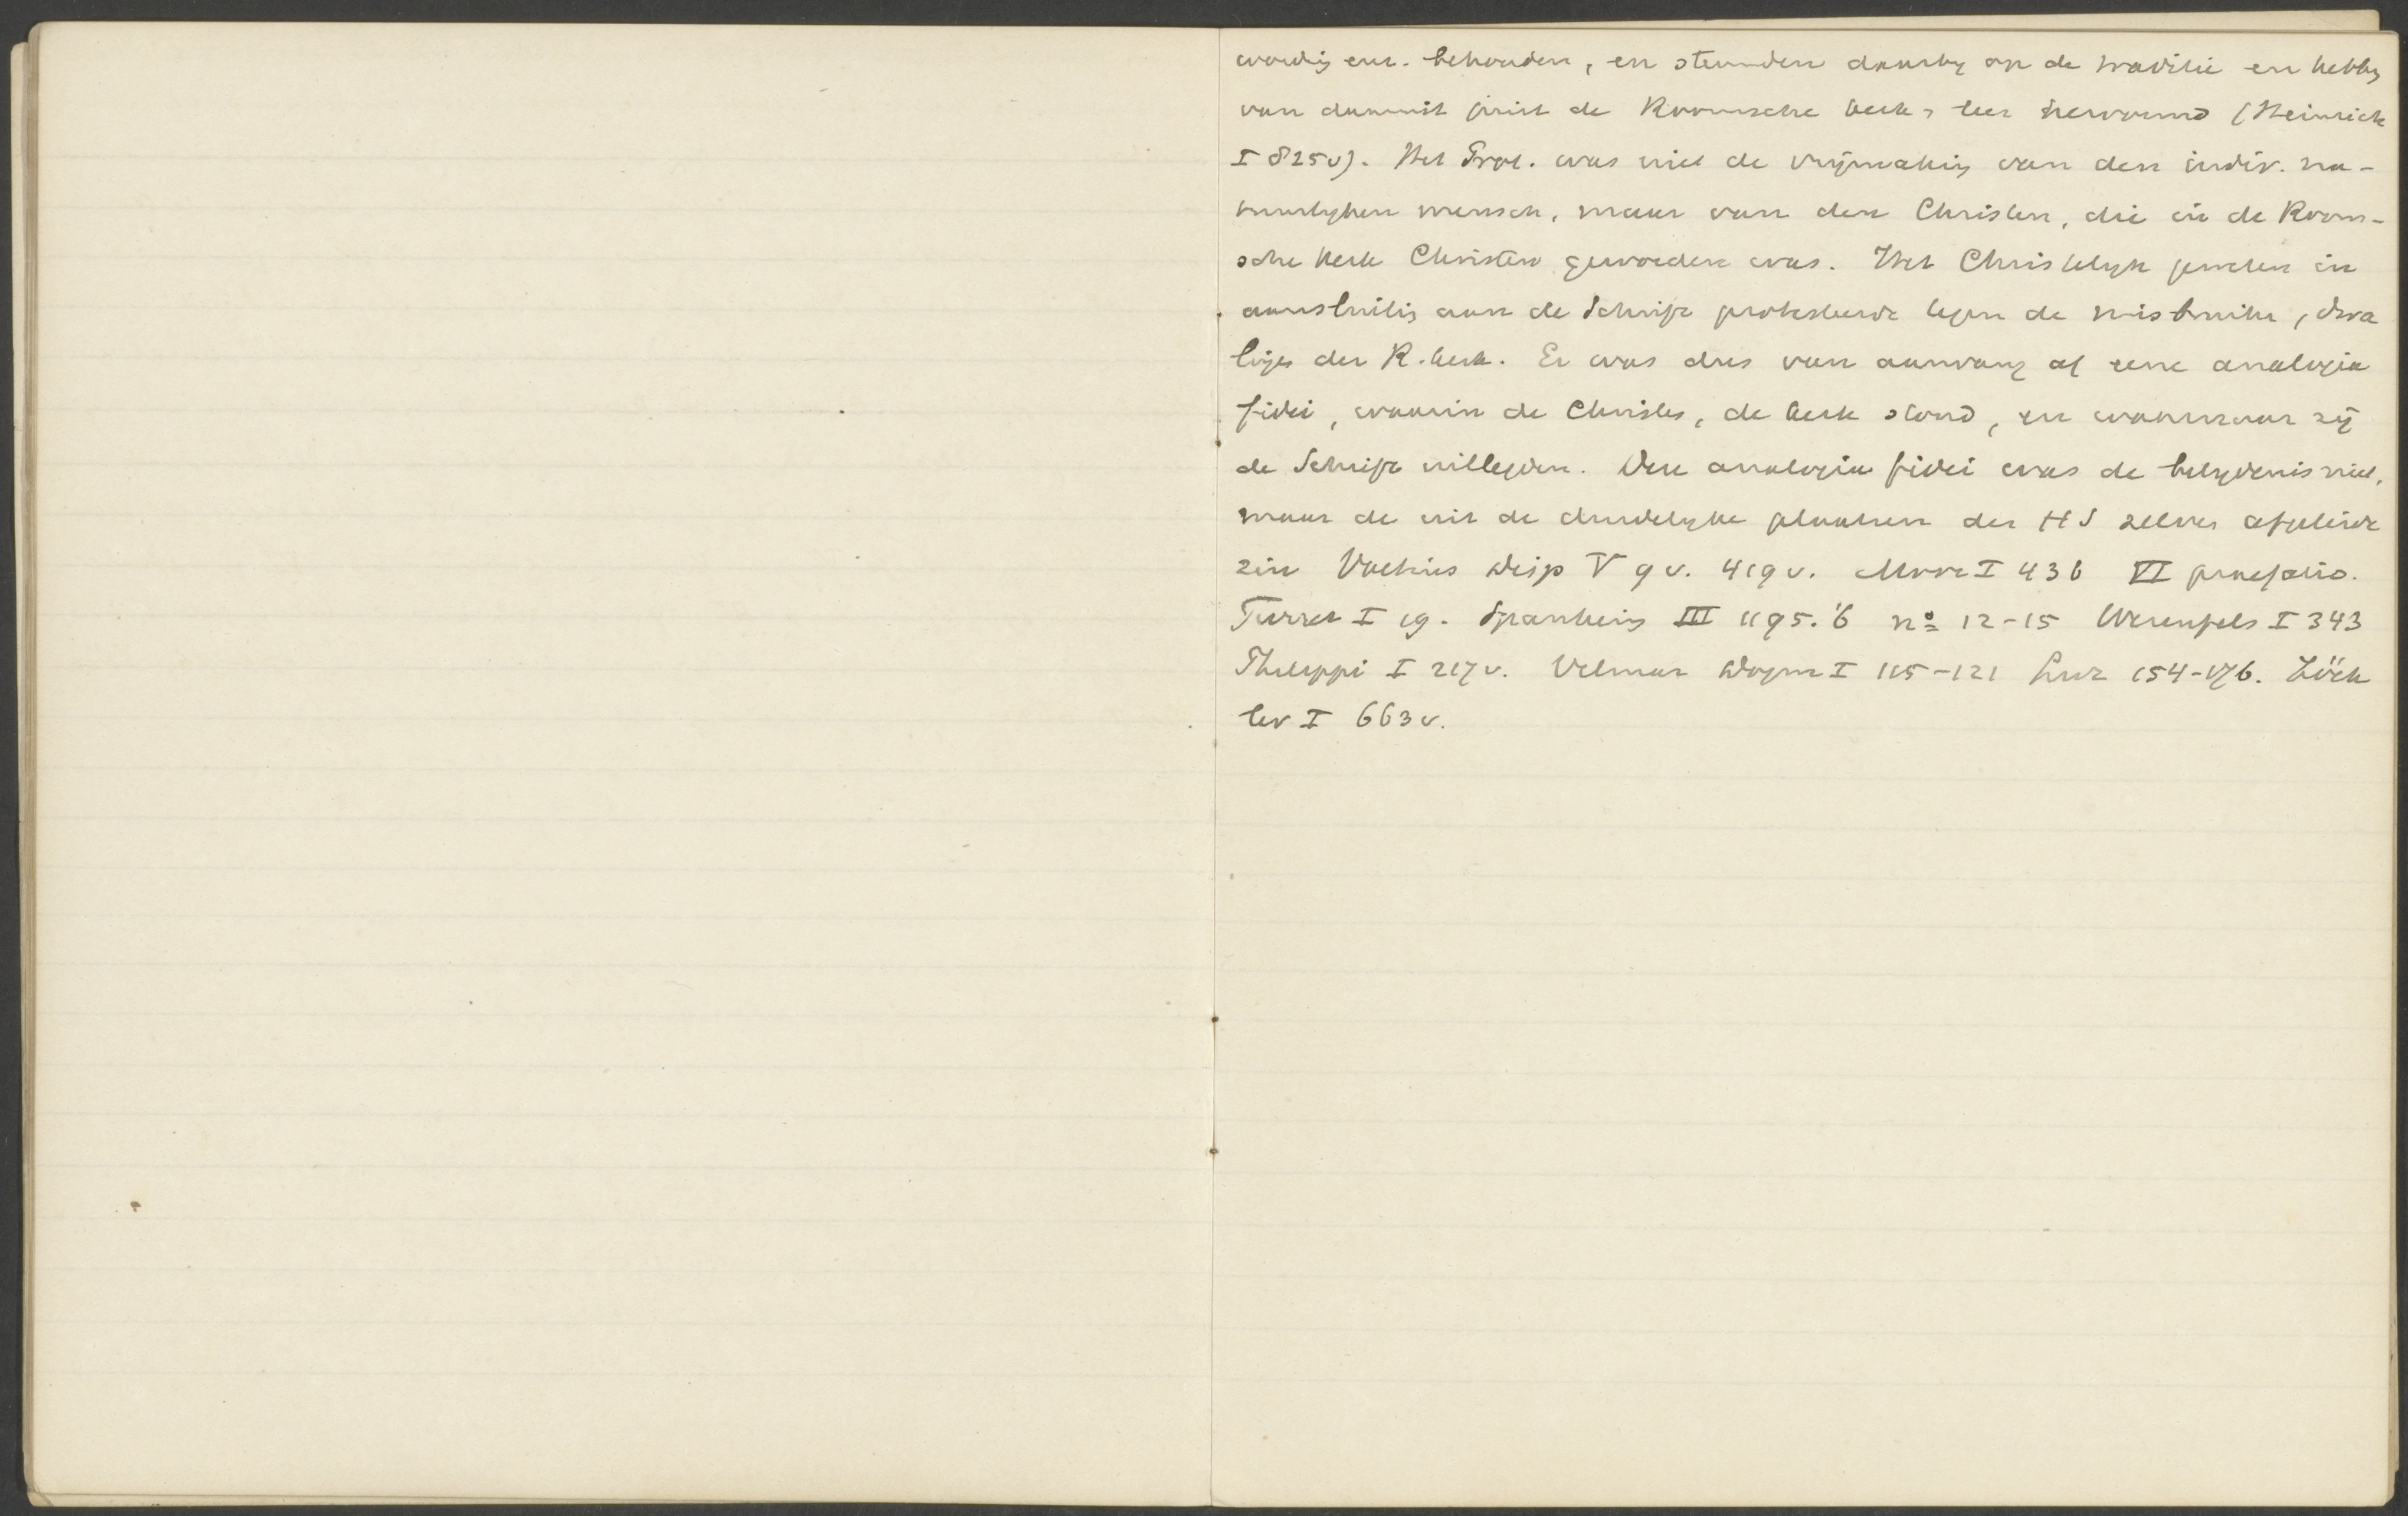 waardig enz. behouden, en steunden daarby op de traditie en hebby
van daaruit juist de Roomsche kerk, leer hervormd (Heinrich
I 825v). Het Prot. was niet de vrijmaking van den indiv. na-
tuurlyken mensch, maar van den Christen, die in de Room-
sche kerk Christen geworden was. Het Christelyk geweten in
aansluitig aan de Schrift protesteerde tegen de misbruiken, dwa
lingen der R. kerk. Er was dus van aanvang af eene analogia
fidei, waarin de Christen, de kerk stond, en waarnaar zij
de Schrift uitlegden. Deze analogia fidei was de belydenis niet,
maar de uit de duidelyke plaatsen der HS zelve afgeleide
zin Voetius Disp V 9v. 419v. Moor I 436 VI praefatio.
Turret I 19. Spanheim III 1195.'6 no 12-15 Werenfels I 343
Philippi I 217v. Vilmar Dogm I 115-121 Lutz 154-176. Zöck
ler I 663v.